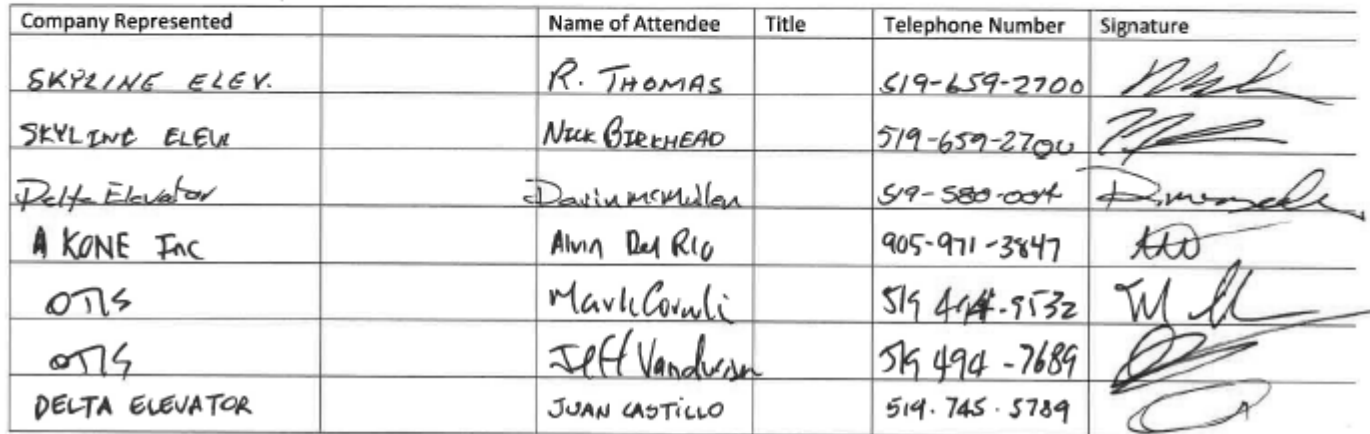 Company Represented Name of Attendee Title Telephone Number Signature
SKYLINE ELEV. R. THOMAS 519-659-2700
SKYLINE ELEV NICK BIRKHEAD 519-659-2700
Delta Elevator Davin McMullen 519-580-004
A KONE Inc Alvin Del Rio 905-971-3847
OTIS Mark 519 -9532
OTIS Jeff 519 494-7689
DELTA ELEVATOR JUAN CASTILLO 519.745.5789